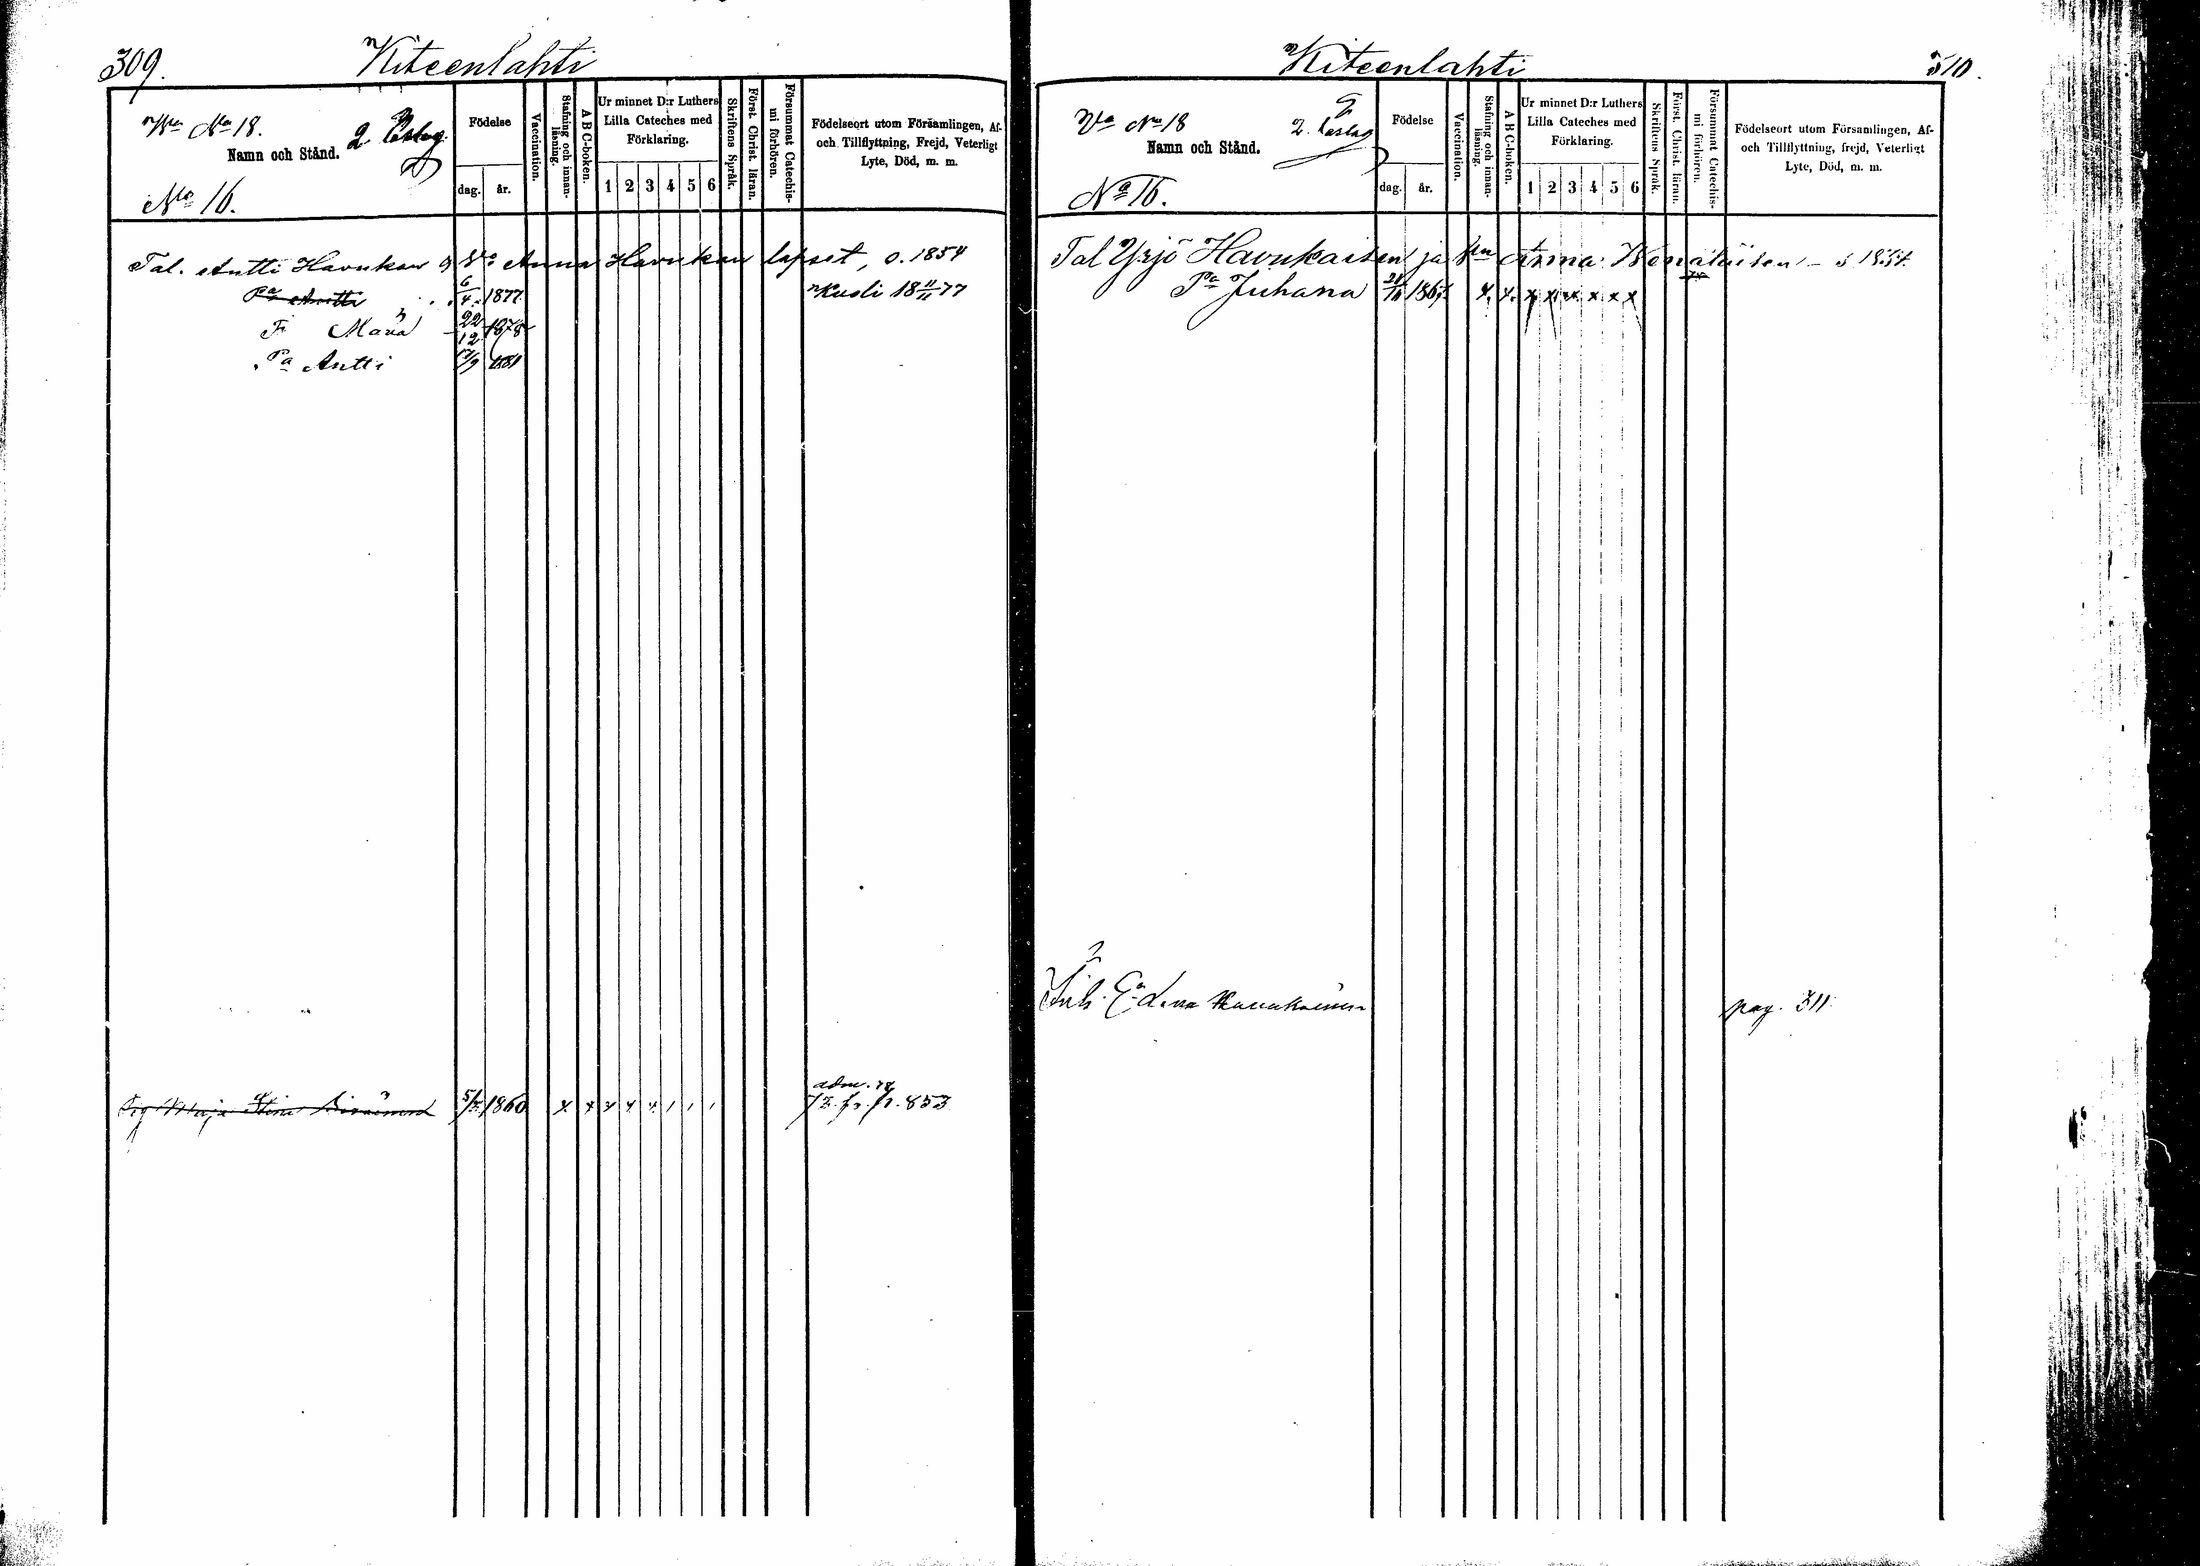 309. Kiteenlahti
Wa No 18. 2 Laslug.
Namn och Stånd.
No 16.
Födelse
dag. år.
Vaccination.
Stafning och innan-
läsning.
A B C-boken.
Ur minnet D:r Luthers
Lilla Cateches med
Förklaring.
1 2 3 4 5 6
Skriftens Språk.
Först. Christ. läran.
Försummat Catechis-
mi förhören.
Födelseort utom Församlingen, Af-
och Tillflyttning, Frejd, Veterligt
Lyte, Död, m. m.
Tal. Antti Havukan Anna Havukan lapset, s. 1854
Pa Antti 6/4 1877 Kuoli 18 11/11 77
Fr Maria 22/12 1878
Pa Antti 17/9 1881
adm. 78
Pig Maja Stina 1860 x x x x x 73. fr. p. 853
Kiteenlahti 310.
Wa No 18 2. Laslug
Namn och Stånd.
No 16.
Födelse
dag. år.
Vaccination.
Stafning och innan-
läsning.
A B C-boken.
Ur minnet D:r Luthers
Lilla Cateches med
Förklaring.
1 2 3 4 5 6
Skriftens Språk.
Först. Christ. läran.
Försummat Catechis-
mi förhören.
Födelseort utom Församlingen, Af-
och Tillflyttning, frejd, Veterligt
Lyte, Död, m. m.
Tal Yrjö Havukaisen ja Anna Wenäläisen – s 1834
Pa Juhana 1867 x. x. x x x x x x
Inh. Lena Havukainen pag. 311.